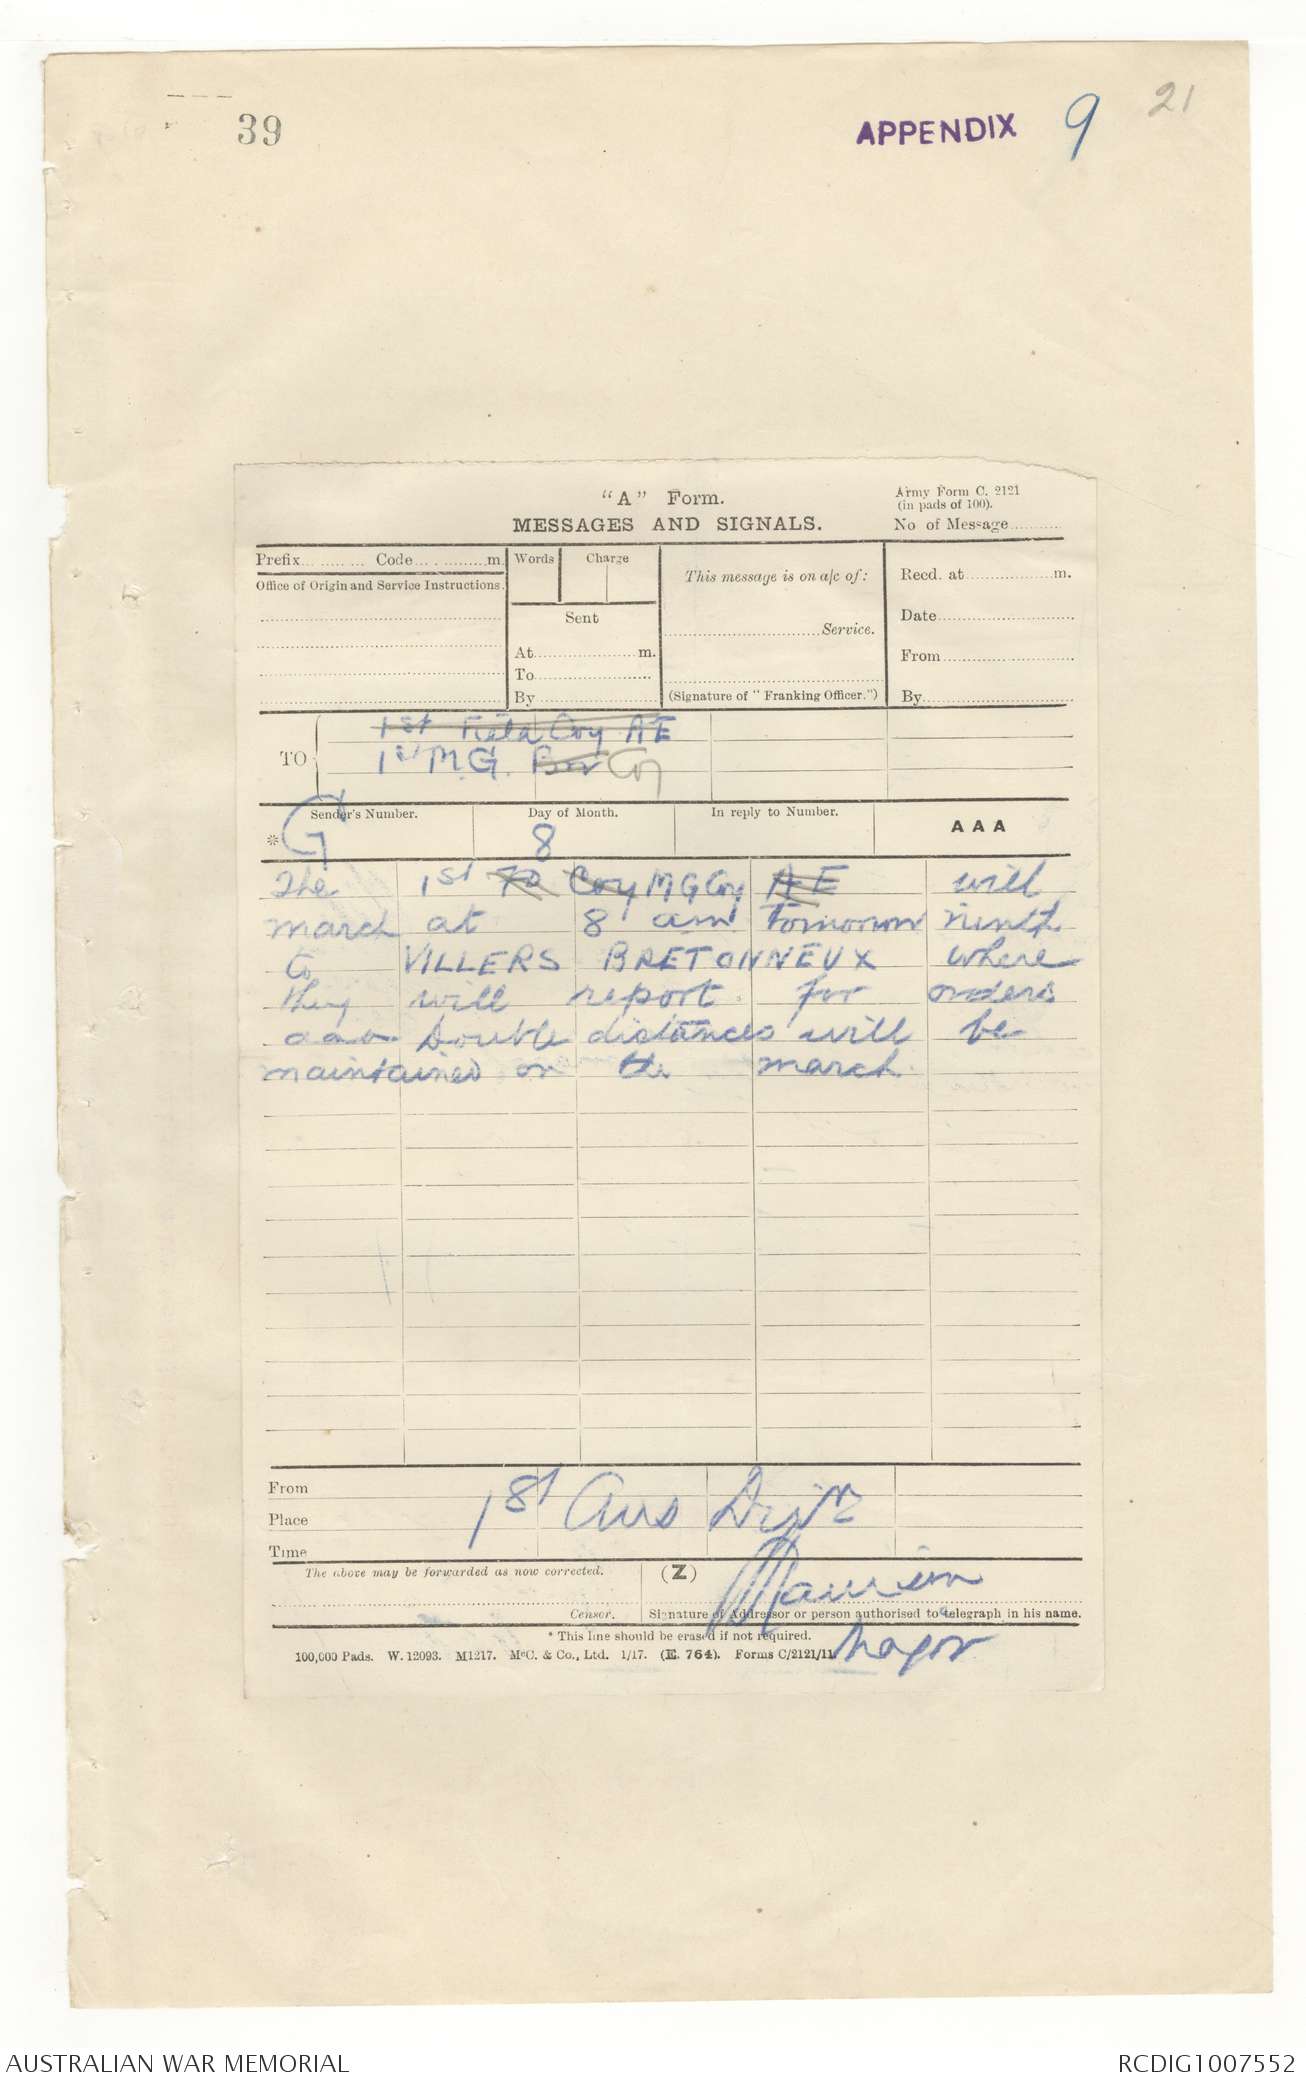 39
APPENDIX 9
21
"A" Form.
MESSAGES AND SIGNALS.
Army Form C. 2121
(in pads of 100).
No of Message............
Prefix............ Code............m.
Words
Charge
This message is on a/c of:
Recd. at..................m.
Office of Origin and Service Instructions.
Sent
Date
..............................Service.
At..................m.
From
To
By
(Signature of "Franking Officer.")
By
TO
1st Field Coy AE
1st M.G. Bn Coy
Sender's Number.
Day of Month.
In reply to Number.
AAA
* G
8
The 1st FD Coy MG Coy AE will
march at 8 am Tomorrow ninth
to VILLERS BRETONNEUX where
they will report for orders
aaa Double distances will be
maintained on the march.
From
1st Aus Divn
Place
Time
The above may be forwarded as now corrected.
(Z)
Censor.
Signature of Addressor or person authorised to telegraph in his name.
Major
* This line should be erased if not required.
100,000 Pads. W. 12093. M1217. McC. & Co., Ltd. 1/17. (E. 764). Forms C/2121/11.
AUSTRALIAN WAR MEMORIAL
RCDIG1007552